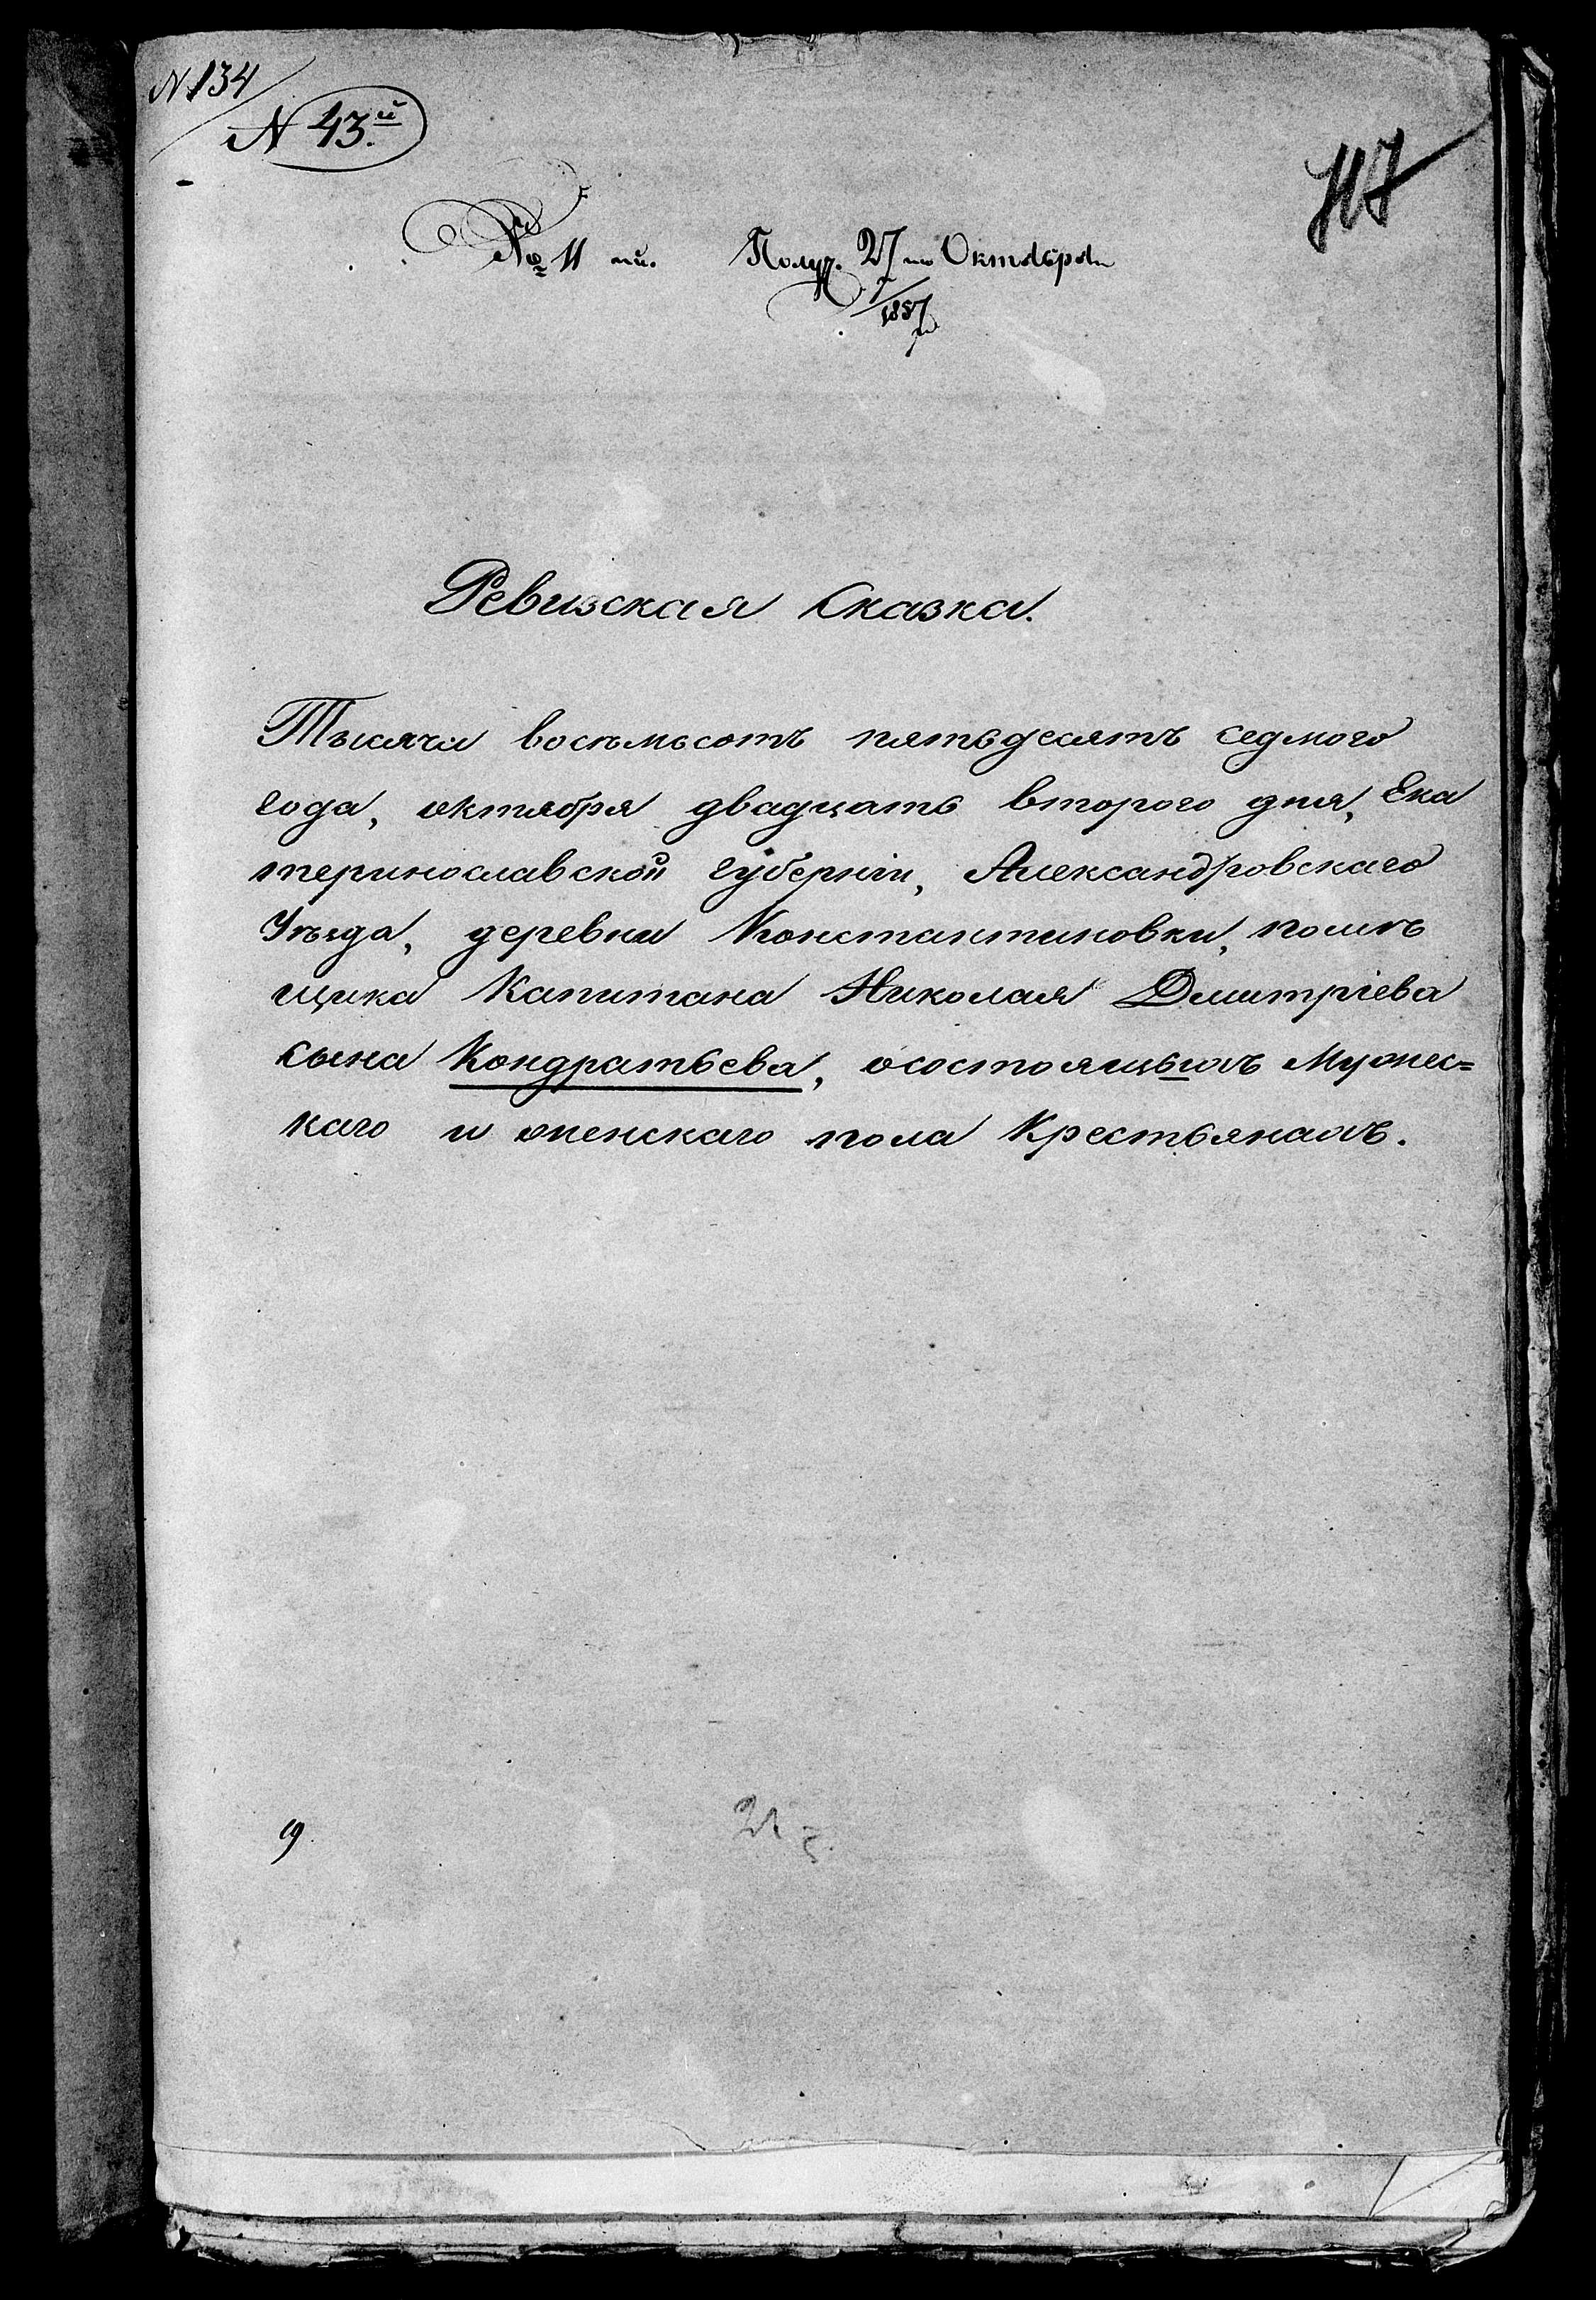 N 134
N 43.й
417
№ 11 й. Получ. 27го Октября
1857
Ревизская Сказка.
Тысяча восѣмьсотъ пятьдесятъ седмого
года, октября двадцать второго дня, Ека
теринославской губерніи, Александровскаго
Уѣзда, деревни Константиновки, помѣ
щика Капитана Николая Дмитріева
сына Кондратьева, осостоящихъ Мужес=
каго и женскаго пола Крестьянахъ.
19